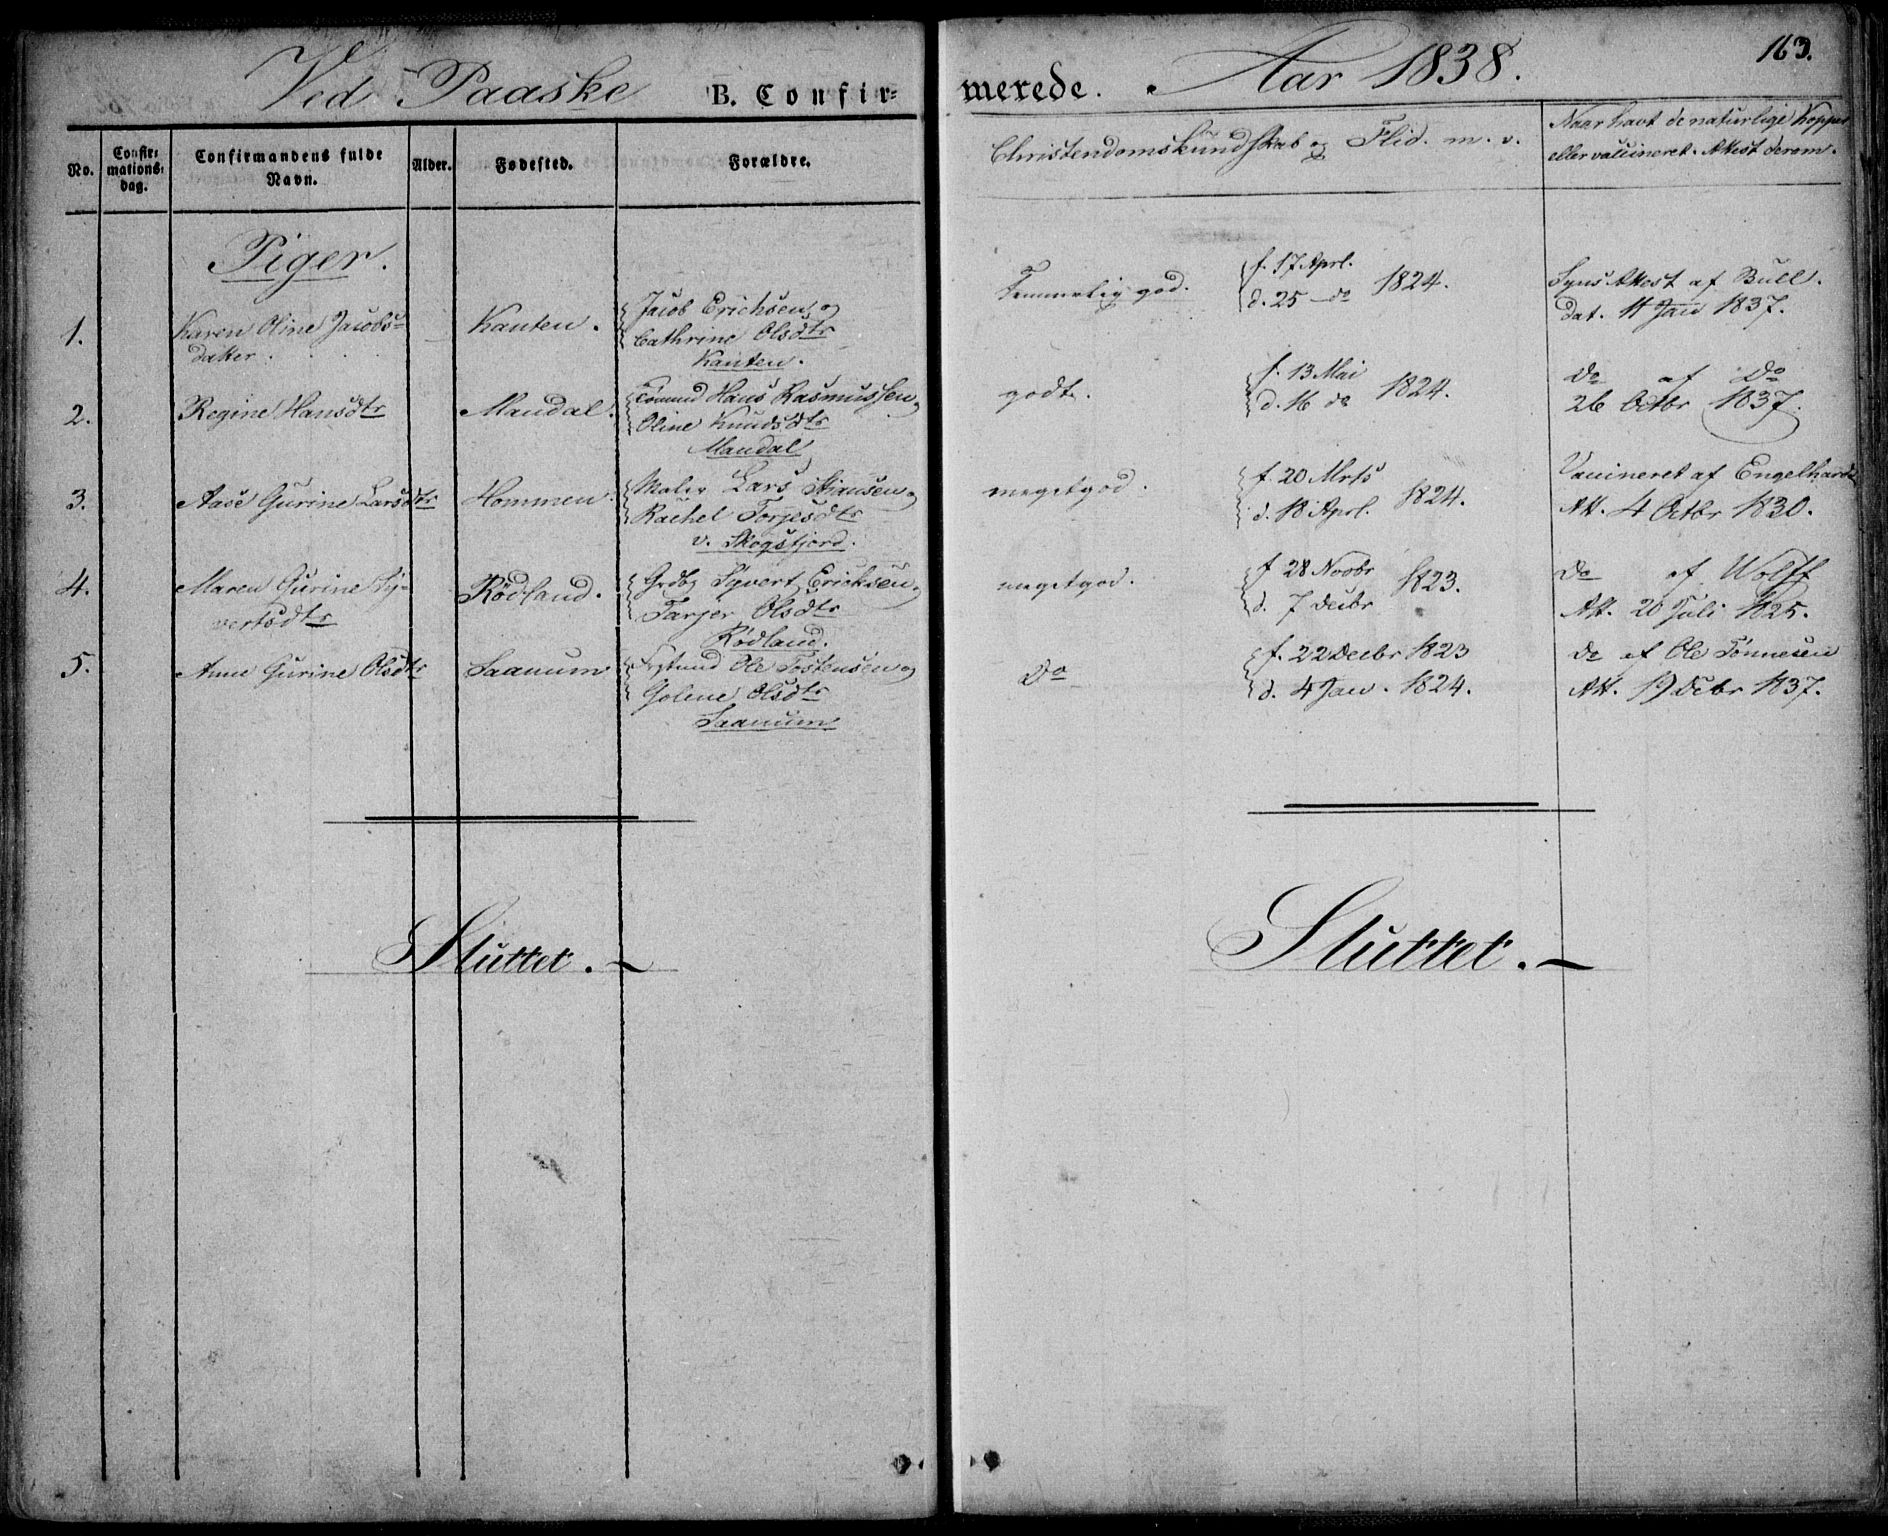 163.
Ved Paaske B. Confir= merede. Aar 1838.
No.
Confir-
mations-
dag.
Confirmandens fulde
Navn.
Alder.
Fødested.
Forældre.
Christendomskundskab og Flid. m. v.
Naar havt de naturlige Kopper
eller vaccineret. Attest derom.
Piger.
1.
Karen Oline Jacobs-
datter.
Kanten.
Jacob Erichsen og
Cathrine Olsdtr
Kanten.
Temmelig god.
f. 17 Aprl.
d. 25 do 1824.
Syns Attest af Bull.
dat. 11 Jan 1837.
2.
Regine Hansdtr
Mandal.
Tømmd Hans Rasmussen og
Oline Knudsdtr
Mandal
godt.
f. 13 Mai
d. 16 do 1824.
do af do
26 Octbr 1837.
3.
Aase Gurine Larsdtr
Hommen.
Maler Lars og
Rachel Torjesdtr
v. Skogsfjord.
megetgod.
f. 20 Mrts
d. 18 Aprl. 1824.
Vaccineret af Engelhardt
Att. 4 Octbr 1830.
4.
Maren Gurine Sy-
vertsdtr
Rødland.
Grdbg Syvert Erichsen og
Tarjer Olsdtr
Rødland.
megetgod.
f 28 Novbr
d. 7 Decbr 1823.
do af Wolff
Att. 20 Juli 1825.
5.
Anne Gurine Olsdtr
Saanum
Ole Tostensen og
Golene Olsdtr
Saanum
do
f. 22 Decbr 1823
d. 4 Jan. 1824.
do af Ole Tønnesen
Att. 19 Debr 1837.
Sluttet.
Sluttet.